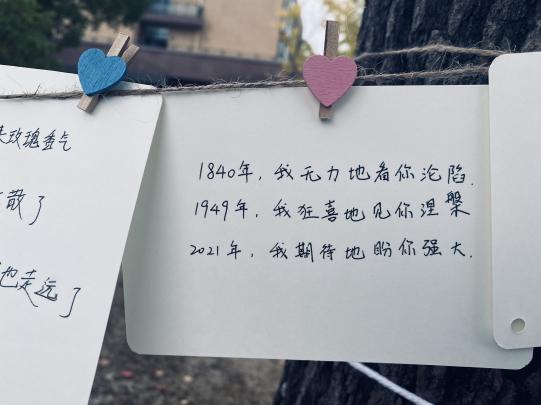 玫瑰香气
散了
也走远了
1840年，我无力地看你沦陷.
1949年，我狂喜地见你涅槃
2021年，我期待地盼你强大.